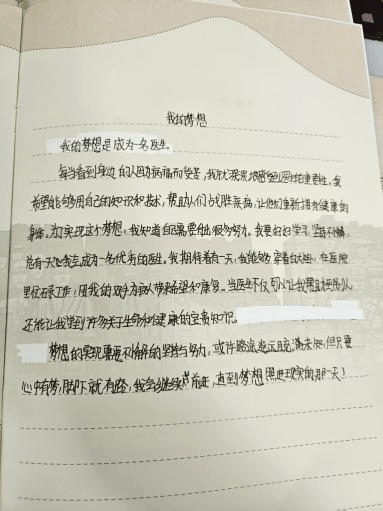 我的梦想
我的梦想是成为一名医生。
每当看到身边的人因为病痛而受苦，我就深深地感受到医生的重要性。我
希望能够用自己的知识和技术，帮助人们战胜疾病，让他们重新拥有健康的
身体。为了实现这个梦想，我知道自己需要付出很多努力。我要好好学习，坚持不懈，
总有一天我会成为一名优秀的医生。我期待着有一天，我能够穿着白大褂，在医院
里忙碌工作，用我的双手为病人带来希望和康复。当医生不仅可以让我帮助别人
还能让我学到许多关于生命和健康的宝贵知识。
梦想的实现需要不懈的坚持与努力，或许路途遥远且充满未知，但只要
心中有梦，脚下就有路，我会继续前进，直到梦想照进现实的那一天！